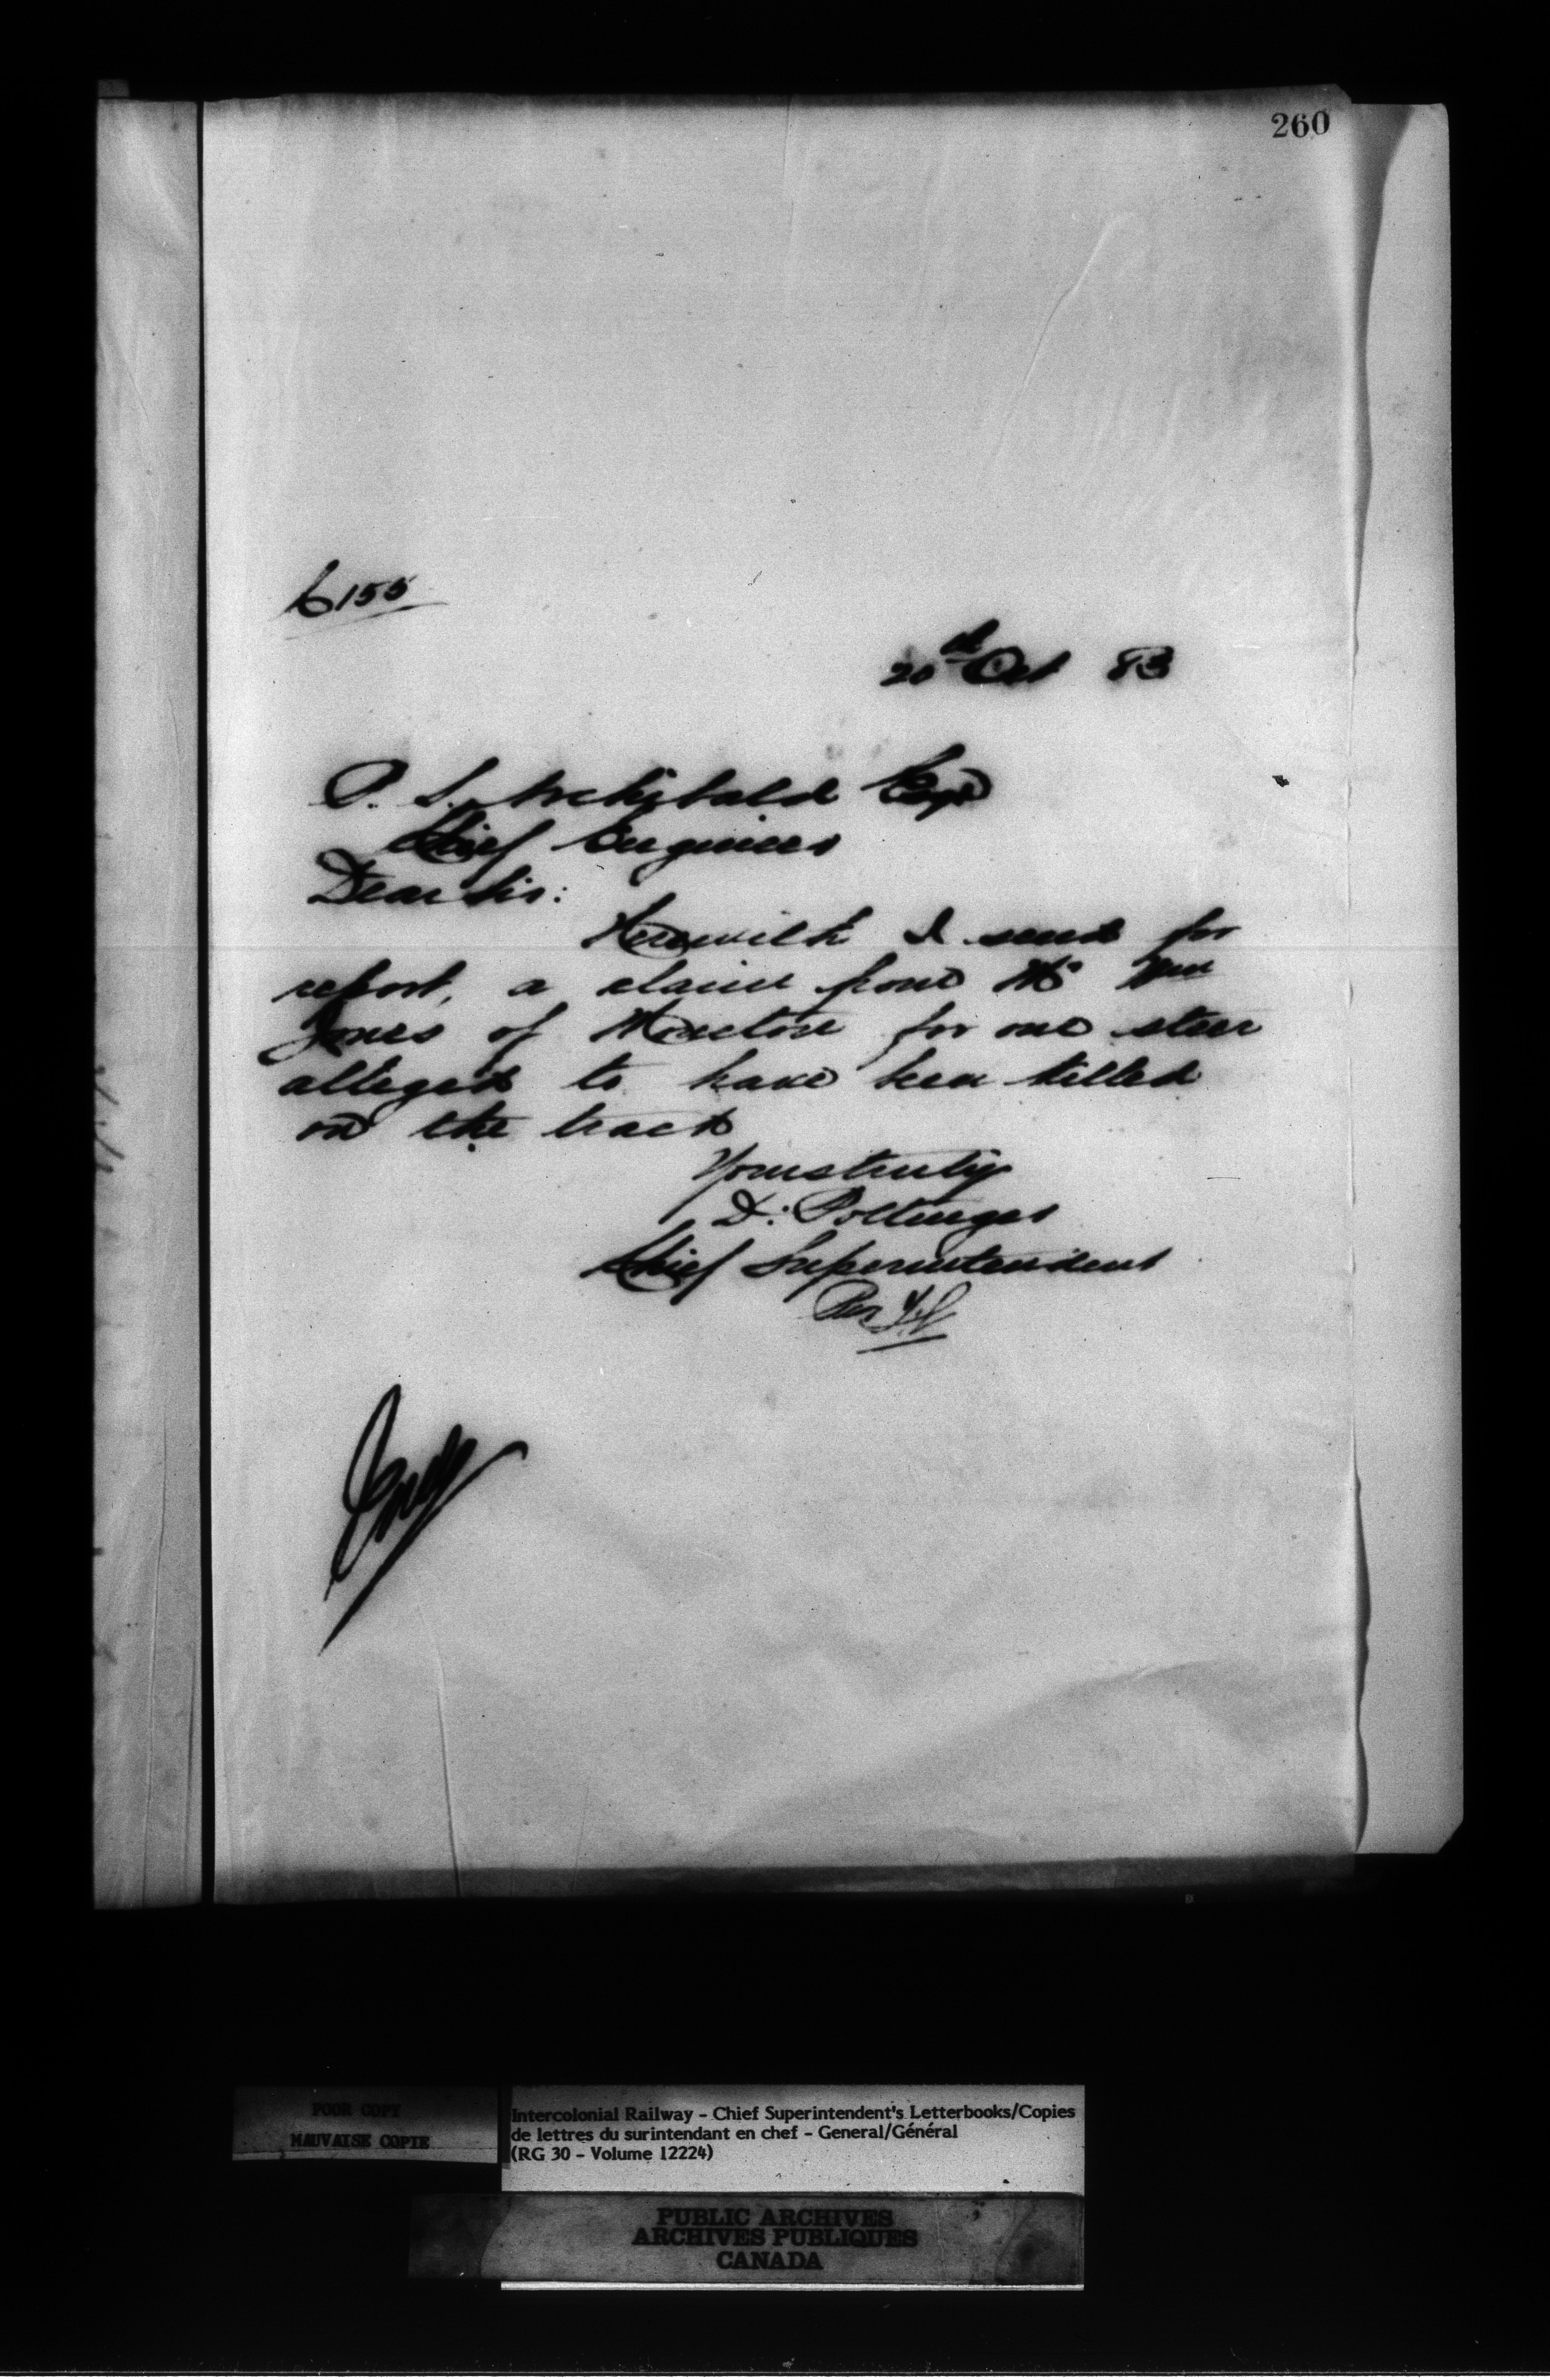 260
C155
20th Oct 83
P. S. Archibald Esqr
Chief Engineer
Dear Sir:
Herewith I send for
report, a claim from Mr Wm
Jones of Moncton for one steer
alleged to have been killed
on the track
Yours truly
D. Pottinger
Chief Superintendent
Per
POOR COPY
MAUVAISE COPIE
Intercolonial Railway - Chief Superintendent's Letterbooks/Copies
de lettres du surintendant en chef - General/Général
(RG 30 - Volume 12224)
PUBLIC ARCHIVES
ARCHIVES PUBLIQUES
CANADA